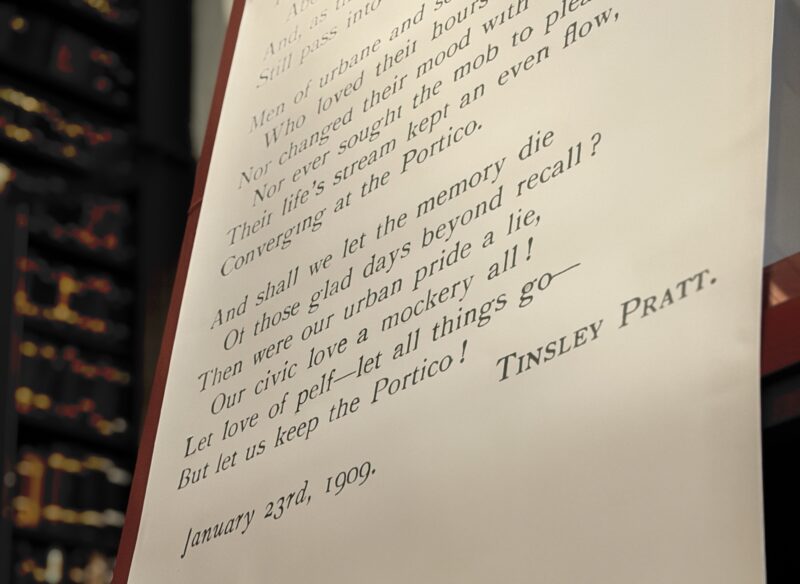 And, as th
Still pass into
Men of urbane and s
Who loved their hours
Nor changed their mood with
Nor ever sought the mob to plea
Their life's stream kept an even flow,
Converging at the Portico.
And shall we let the memory die
Of those glad days beyond recall?
Then were our urban pride a lie,
Our civic love a mockery all!
Let love of pelf—let all things go—
But let us keep the Portico!
TINSLEY PRATT.
January 23rd, 1909.